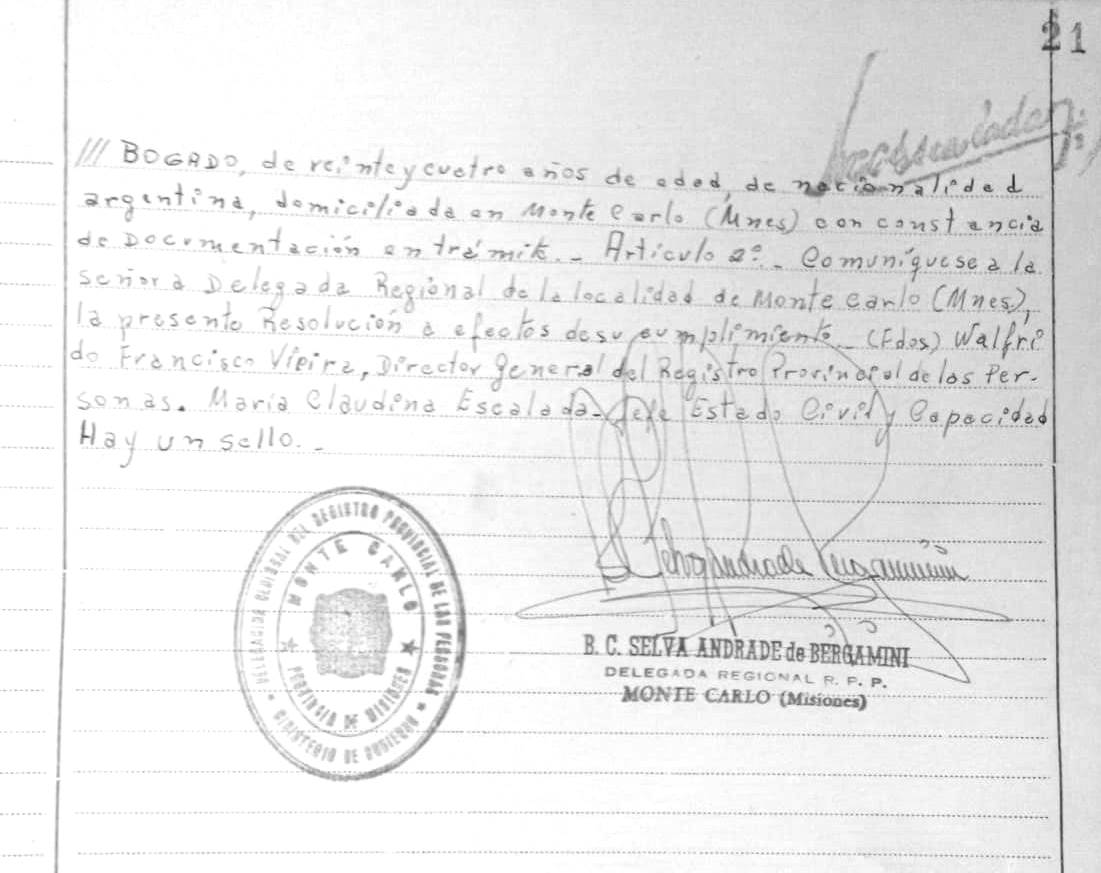 21
/// BOGADO, de veinte y cuatro años de edad, de nacionalidad
argentina, domiciliada en Monte Carlo (Mnes) con constancia
de Documentación en trámite.- Artículo 2º.- Comuníquese a la
señora Delegada Regional de la localidad de Monte Carlo (Mnes),
la presente Resolución a efectos de su cumplimiento.- (Fdos) Walfri
do Francisco Vieira, Director General del Registro Provincial de las Per-
sonas. María Claudina Escalada- Jefe Estado Civil y Capacidad
Hay un sello.-
DELEGACION REGIONAL DEL REGISTRO PROVINCIAL DE LAS PERSONAS
MONTE CARLO
PROVINCIA DE MISIONES
MINISTERIO DE GOBIERNO
B. C. SELVA ANDRADE de BERGAMINI
DELEGADA REGIONAL R. P. P.
MONTE CARLO (Misiones)